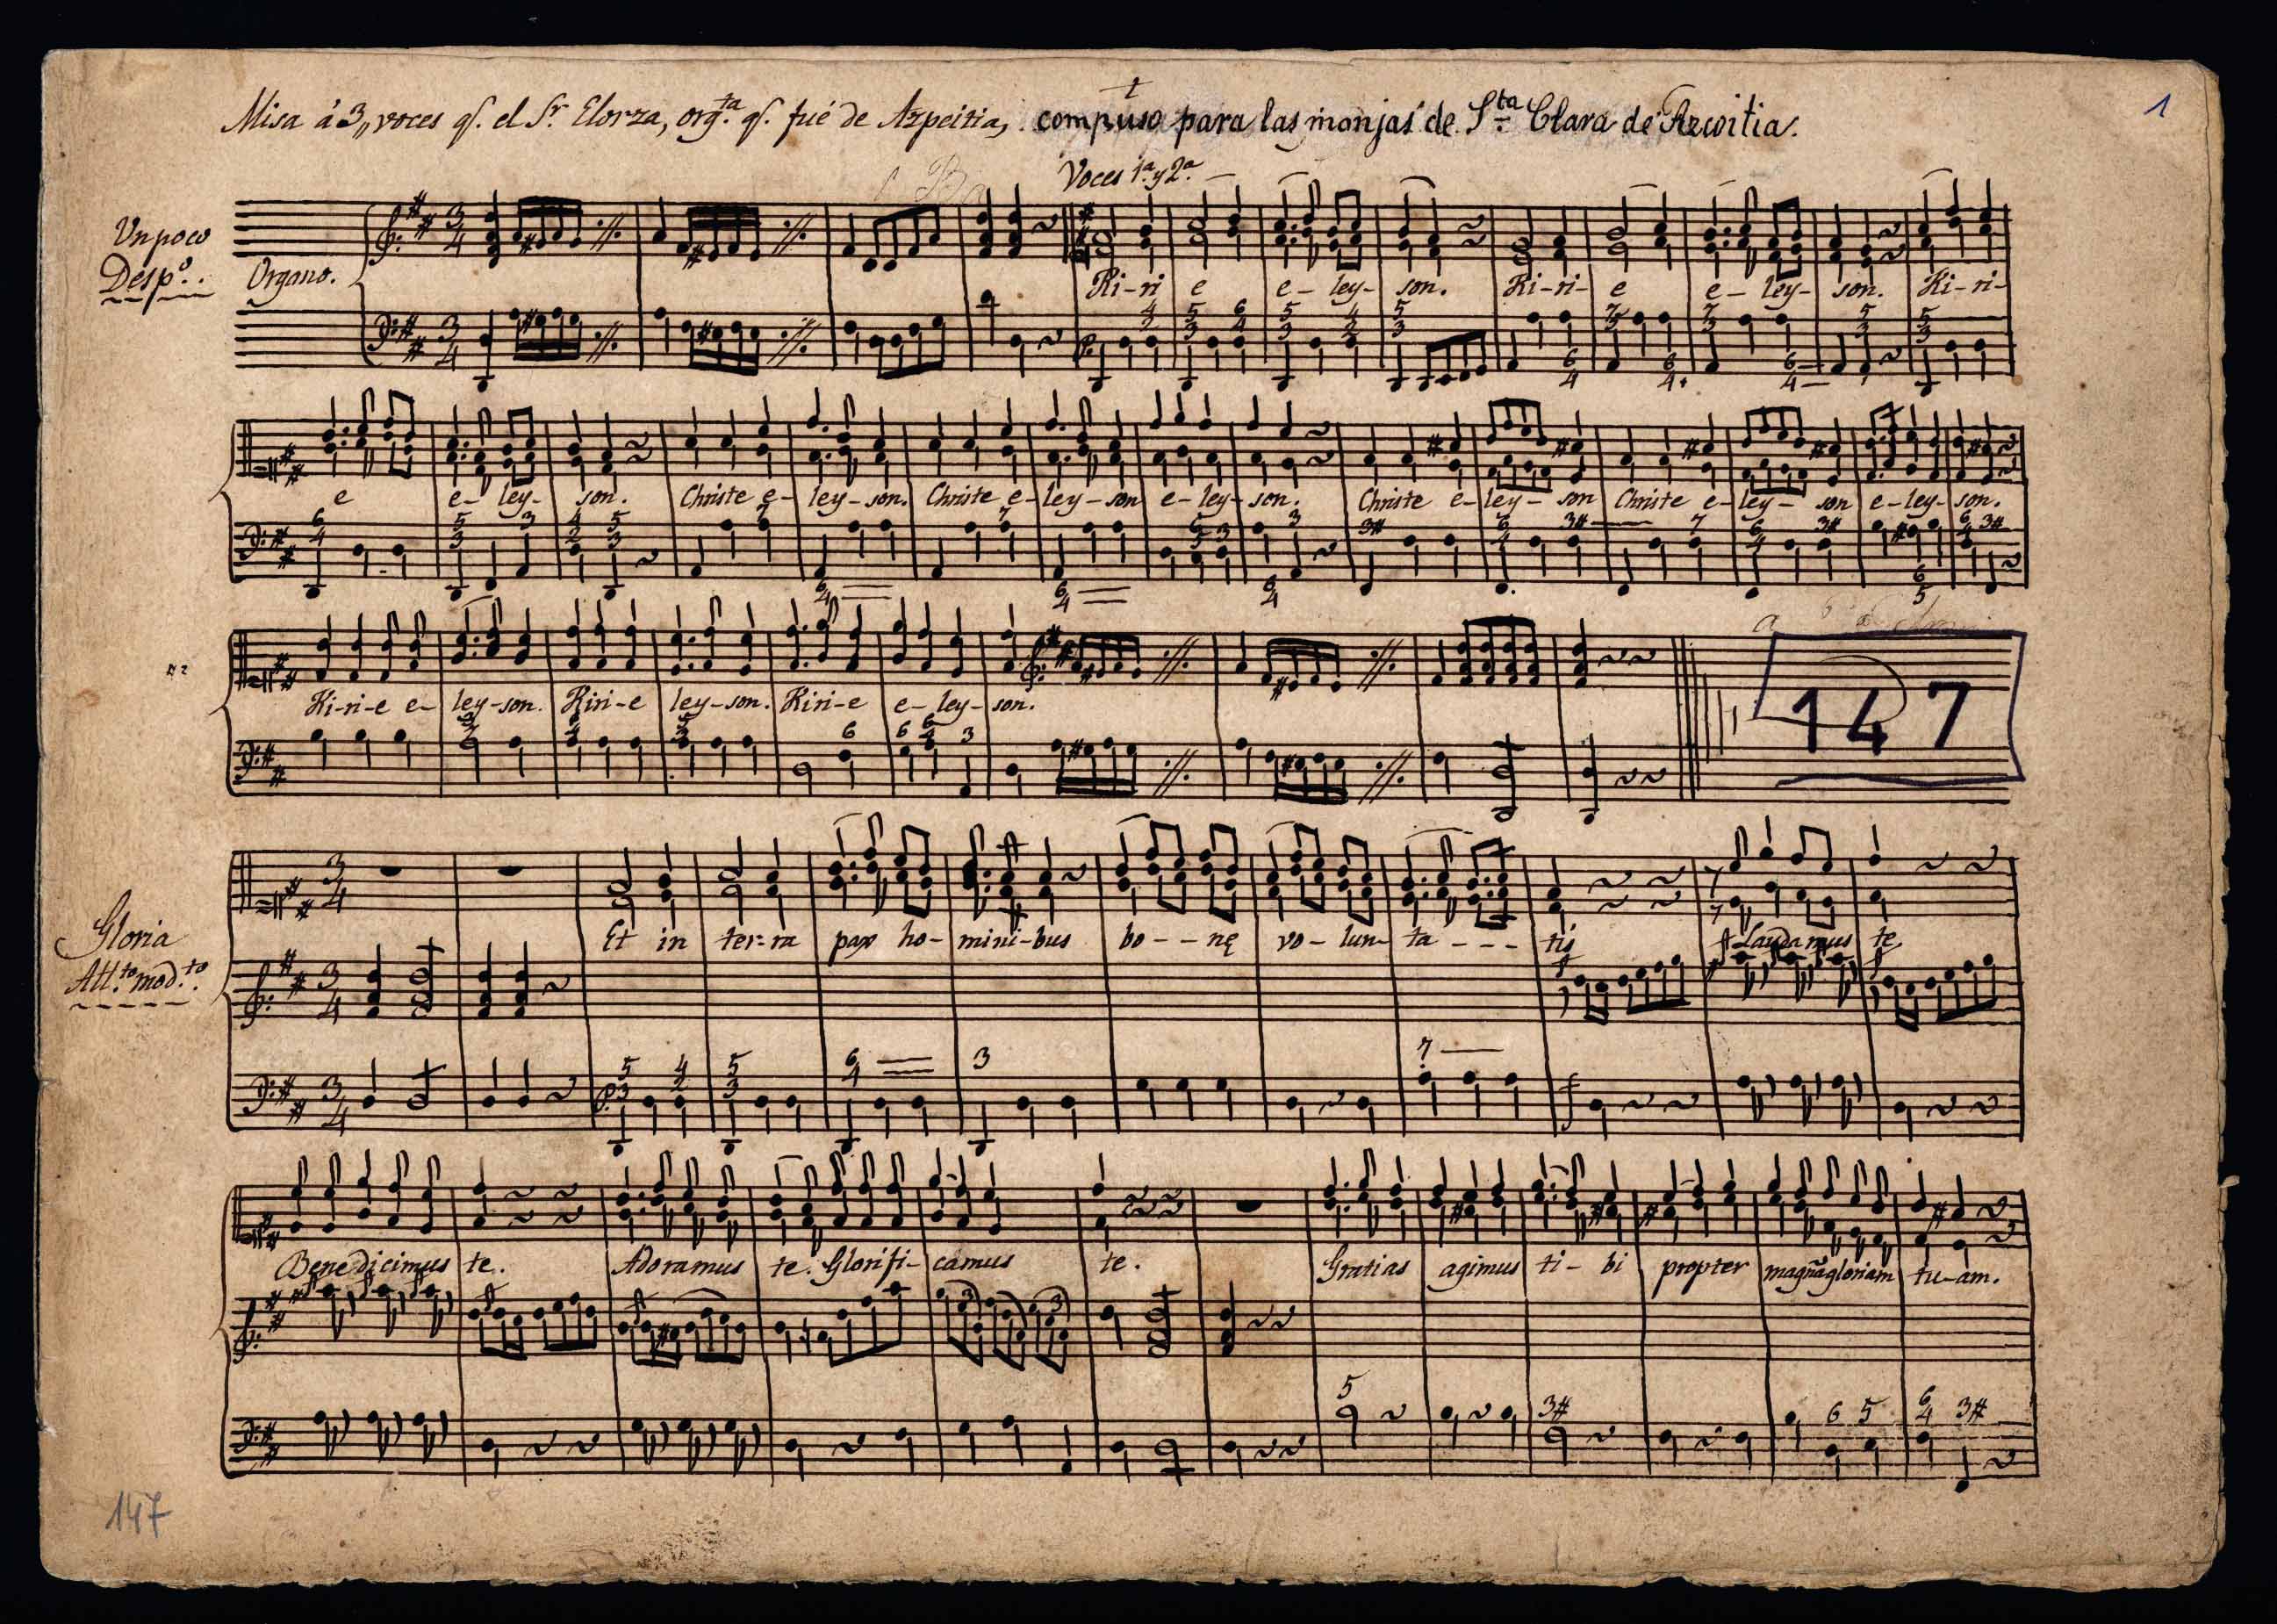 1
Misa á 3,, voces q.ᵉ el S.ʳ Elorza, org.ᵗᵃ q.ᵉ fué de Azpeitia, compuso para las monjas de S.ᵗᵃ Clara de Azcoitia.
Voces 1ª y 2ª
Un poco
Desp.º
Organo.
Ki-ri e e- ley- son. Ki-ri- e e- ley- son. Ki-ri-
e e- ley- son. Christe e- ley-son. Christe e- ley-son e-ley- son. Christe e- ley- son Christe e- ley- son e-ley- son.
Ki-ri-e e- ley-son. Kiri-e ley-son. Kiri-e e-ley- son.
147
Gloria
All.ᵗᵒ mod.ᵗᵒ
Et in ter-ra pax ho- mini-bus bo- - nę vo-lun- ta - - - tis Laudamus te.
Benedicimus te. Adoramus te. Glorifi- camus te. Gratias agimus ti- bi propter magnãgloriam tu-am.
147